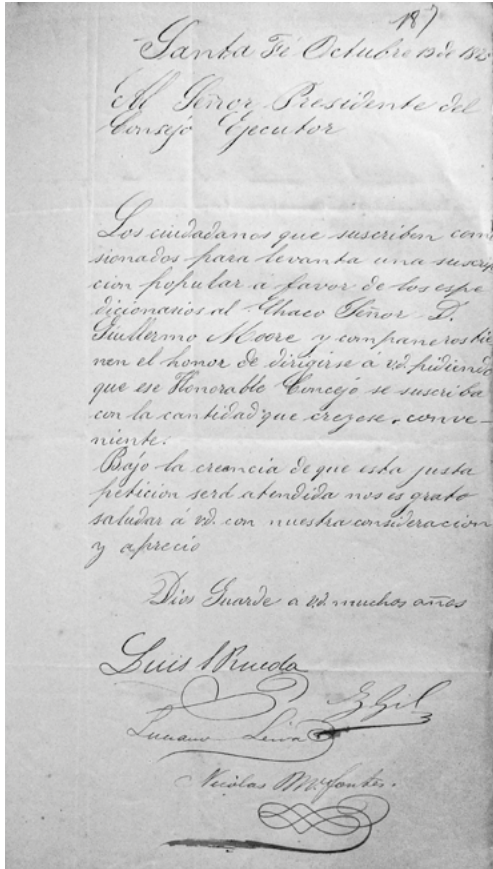 187
Santa Fé Octubre 19 de
Al Señor Presidente del
Consejo Ejecutor
Los ciudadanos que suscriben comi
sionados para levanta una suscrip
cion popular a favor de los espe
dicionasios al Chaco Señor D.
Guillermo Moore y companeros tie
nen el honor de dirigirse á vd. pidiendo
que ese Honorable Concejo se suscriba
con la cantidad que creyese, conve-
niente.
Bajo la creencia de que esta justa
peticion será atendida nos es grato
saludar á vd. con nuestra consideracion
y aprecio
Dios Guarde a vd. muchos años
Luis Rueda
Gil
Luciano Leiva
Nicolas M. Fontes.